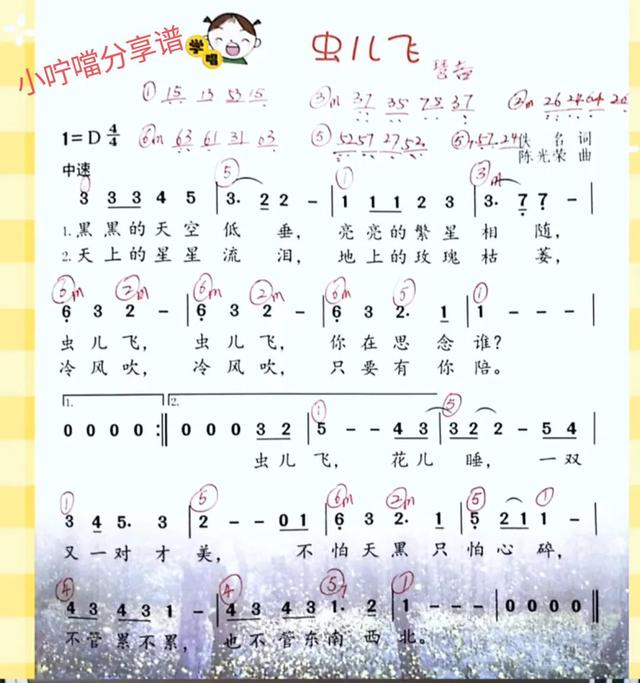 小咛噹分享谱
学唱
虫儿飞
① 15 13 53 15 ③m 37 35 75 37 ②m 26 24 64 26
1=D 4/4 ⑥m 63 61 31 63 ⑤ 52 57 27 52 佚 名 词
陈光荣 曲
中速
① ⑤ ① ③m
3 3 3 4 5 | 3. 2 2 – | 1 1 1 2 3 | 3. 7 7 – |
1.黑黑的天空低 垂, 亮亮的繁星相 随,
2.天上的星星流 泪, 地上的玫瑰枯 萎,
⑥m ②m ⑥m ②m ⑥m ⑤ ①
6 3 2 – | 6 3 2 – | 6 3 2. 1 | 1 – – – |
虫儿飞, 虫儿飞, 你在思念谁?
冷风吹, 冷风吹, 只要有你陪。
1. 2.
① ⑤
0 0 0 0 :‖ 0 0 0 3 2 | 5 – – 4 3 | 3 2 2 – 5 4 |
虫儿飞, 花儿睡, 一双
① ⑤ ⑥m ②m ⑤ ①
3 4 5. 3 | 2 – – 0 1 | 6 3 2. 1 | 5 2 1 1 – |
又一对才美, 不怕天黑只怕心碎,
④ ④ ⑤7 ①
4 3 4 3 1 – | 4 3 4 3 1. 2 | 1 – – – | 0 0 0 0 ‖
不管累不累, 也不管东南西北。